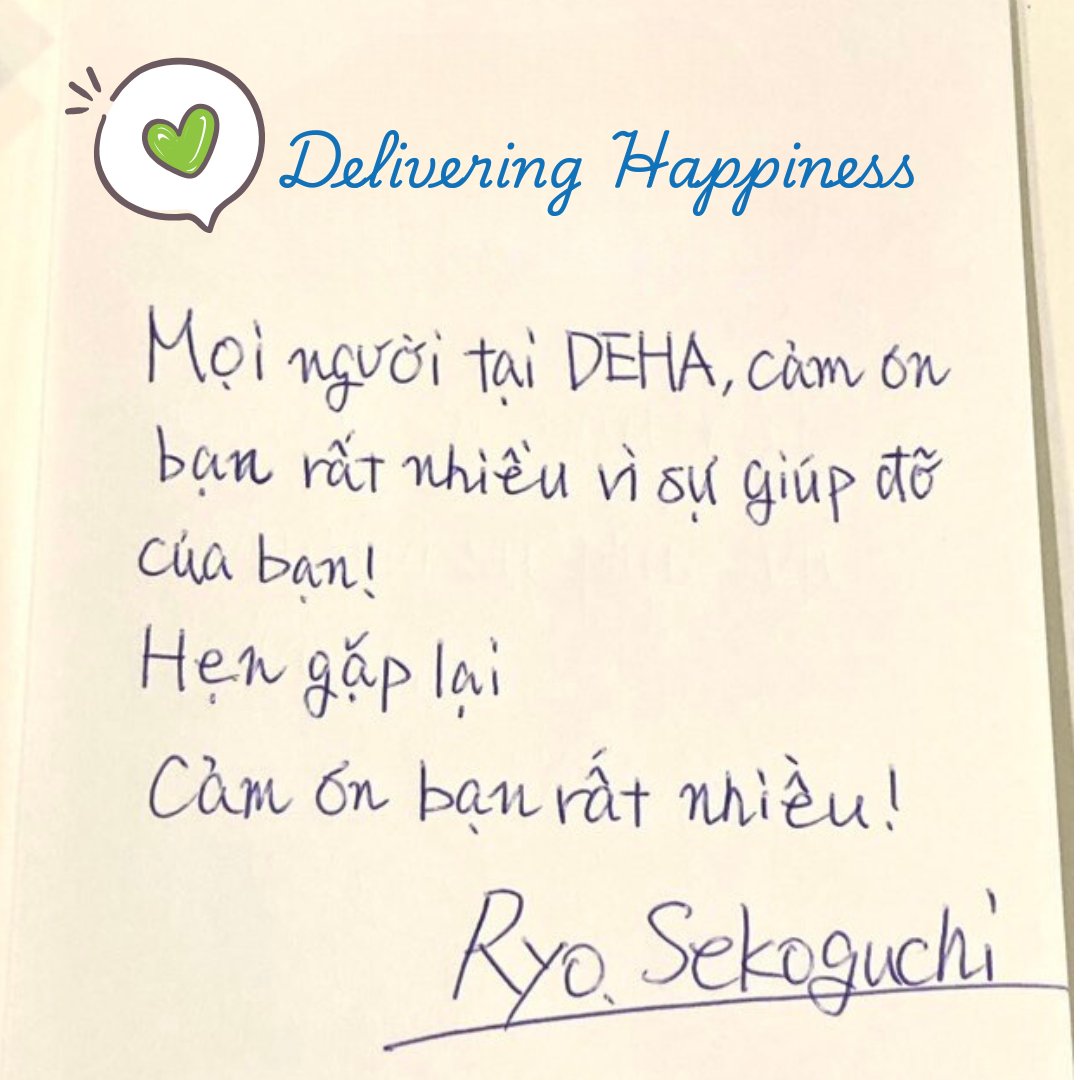 Delivering Happiness
Mọi người tại DEHA, cảm ón
bạn rất nhiều vì sự giúp đỡ
của bạn!
Hẹn gặp lại
Cảm ón bạn rất nhiều!
Ryo. Sekoguchi